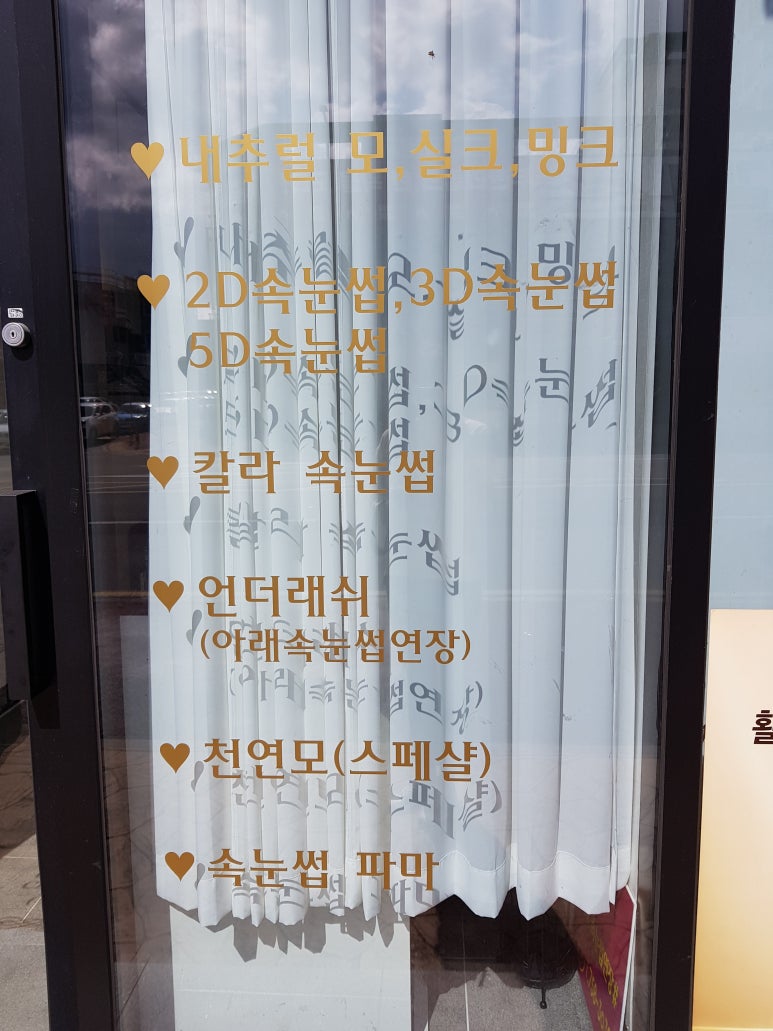 ♥내추럴 모,실크,밍크
♥2D속눈썹,3D속눈썹
5D속눈썹
♥칼라 속눈썹
♥언더래쉬
(아래속눈썹연장)
♥천연모(스페샬)
♥속눈썹 파마
홀